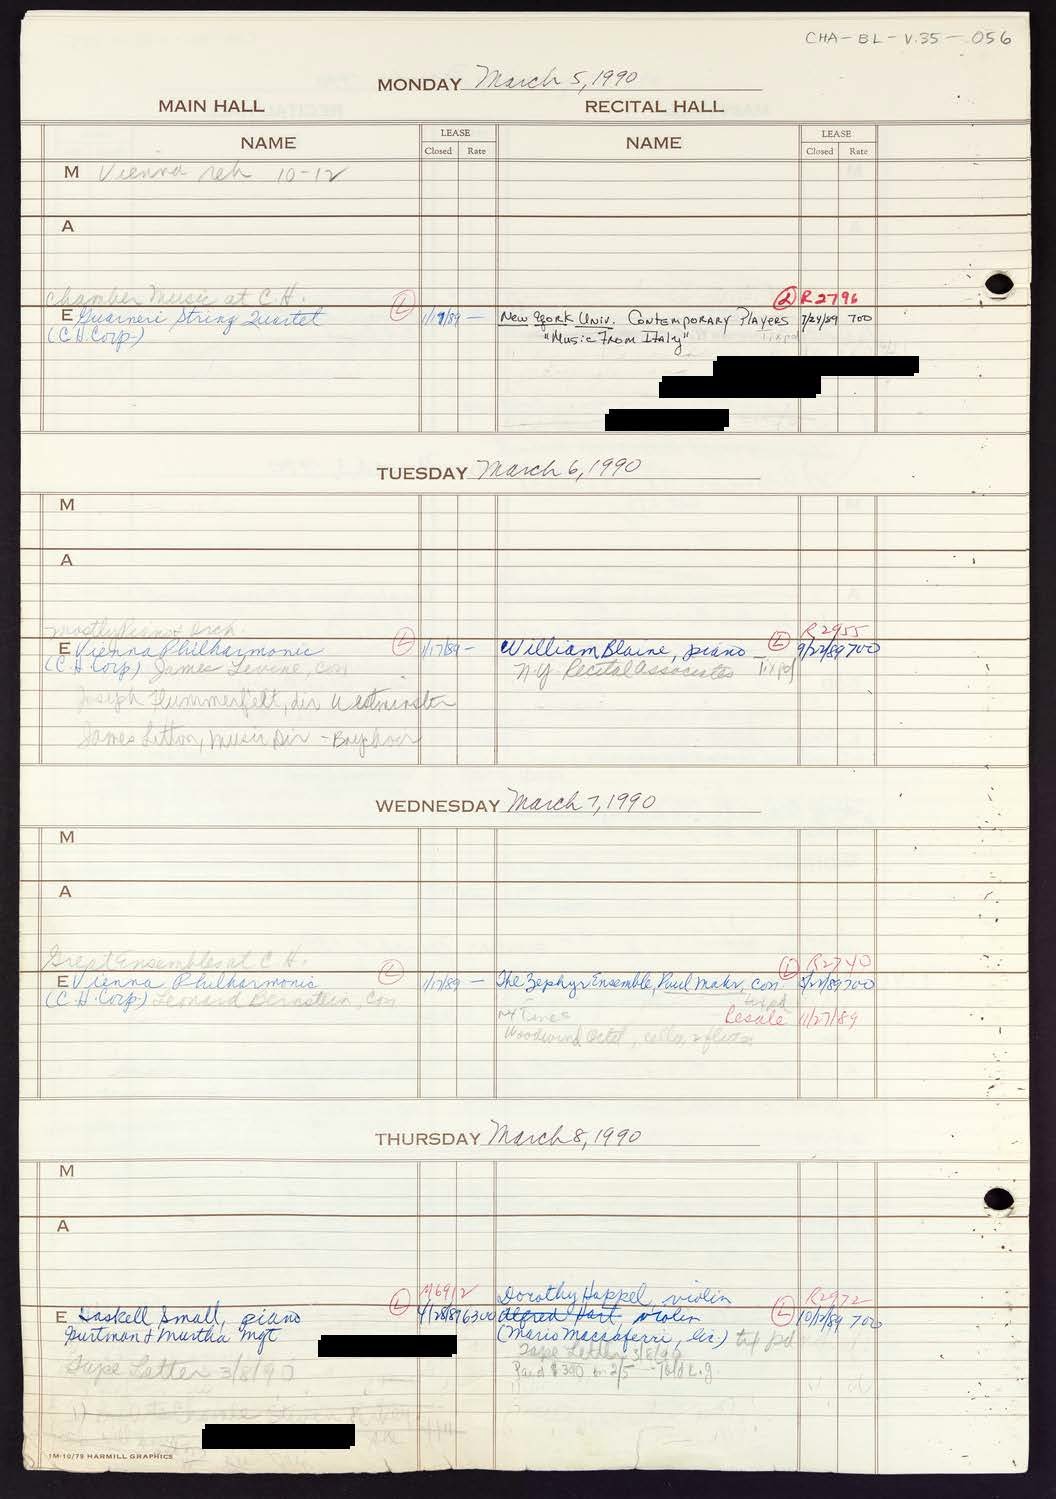 CHA-BL-V.35-056
MONDAY March 5, 1990
MAIN HALL RECITAL HALL
NAME LEASE NAME LEASE
Closed Rate Closed Rate
M Vienna reh 10-12
A
Chamber Music at C.H. L R2796
E Guarneri String Quartet 1/17/89 — New York Univ. Contemporary Players 7/24/89 700
(C.H. Corp) "Music From Italy" Tixpd
TUESDAY March 6, 1990
M
A
Mostly Piano + Orch. R2955
E Vienna Philharmonic L 1/17/89 — William Blaine, piano L 9/22/89 700
(C.H. Corp) James Levine, con N.Y. Recital Associates Tixpd
Joseph Flummerfelt, dir Westminster
James Litton, Music Dir - Boychoir
WEDNESDAY March 7, 1990
M
A
Great Ensembles at C.H. R2740
E Vienna Philharmonic L 1/17/89 — The Zephyr Ensemble, Paul con 700
(C.H. Corp) Leonard Bernstein, con tixpd
NY Times Resale 11/27/89
Woodwind Octet, cello, 2 flutes
THURSDAY March 8, 1990
M
A
M6912 Dorothy Happel violin R2972
E Haskell Small, piano L 4/28/89 6300 Alfred Hart, violin L 10/12/89 700
Gurtman + Murtha Mgt (Mario Maccaferri, lic.) tix pd
Tape Letter 3/8/90 Tape Letter 3/8/90
Paid $300 on 2/5
1)
1M-10/79 HARMILL GRAPHICS